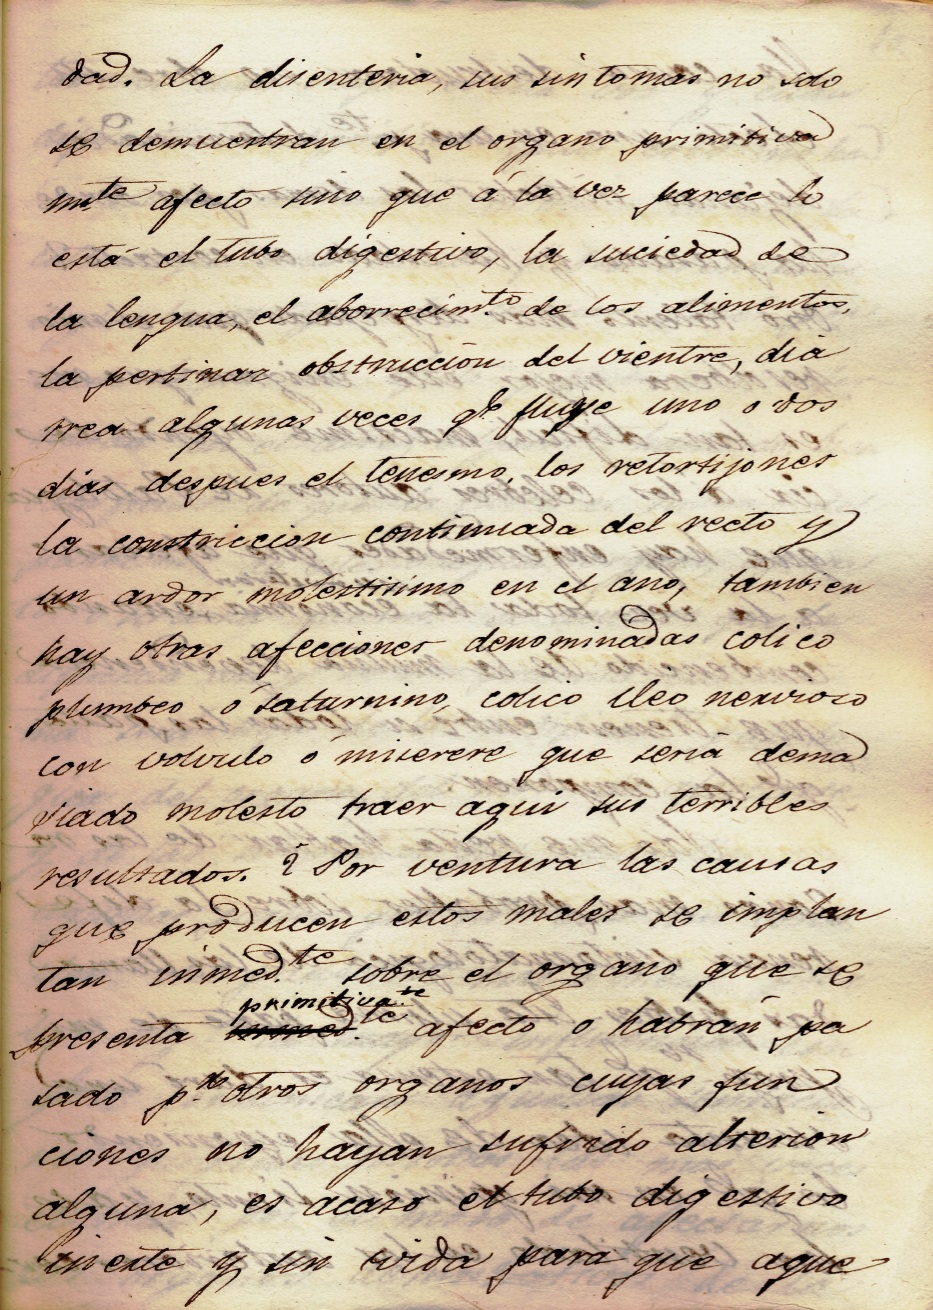 dad. La disenteria, sus sintomas no solo
se demuestran en el organo primitiva
mte afecto sino que á la vez parece lo
está el tubo digestivo, la suciedad de
la lengua, el aborrecimto. de los alimentos,
la pertinaz obstruccion del vientre, dia
rrea algunas veces qe fluye uno o dos
dias despues el tenesmo, los retortijones
la constriccion continuada del recto y
un ardor molestisimo en el ano, tambien
hay otras afecciones denominadas colico
plumbeo ó saturnino, colico ileo nervioso
con volvulo ó miserere que seria dema
siado molesto traer aqui sus terribles
resultados. ? Por ventura las causas
que producen estos males se implan
tan inmed.te sobre el organo que se
presenta primitiva.te afecto o habrán pa
sado pr. otros organos cuyas fun
ciones no hayan sufrido alterion
alguna, es acaso el tubo digestivo
inerte y sin vida para que aque